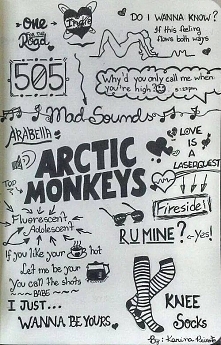 one
For the
Road
Indie
DO I WANNA KNOW?
If this feeling
flows both ways
505
Why'd you only call me when
you're high?
Mad Sounds
ARABELLA
LOVE
IS A
LASERQUEST
ARCTIC
MONKEYS
Fireside!
Fluorescent
Adolescent
R U MINE?
-Yes!
If you like your hot
Let me be your
You call the shots
~ BABE ~
I JUST...
WANNA BE YOURS
KNEE
Socks
By: Karina